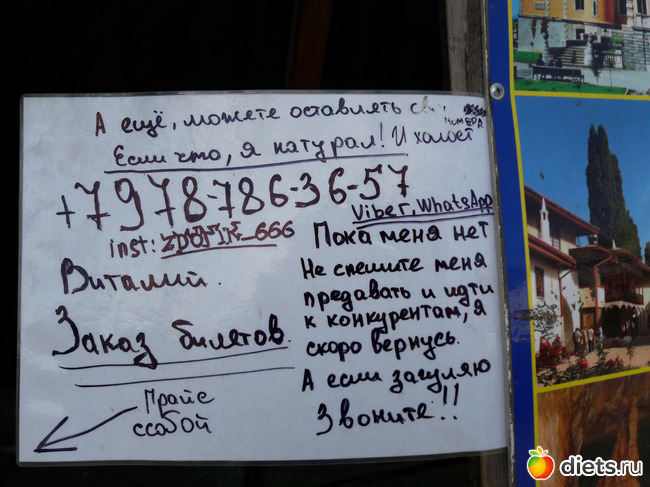 А ещё, можете оставлять
номера
Если что, я натурал! И холост
+7978-786-36-57
Viber, WhatsApp
inst: _666
Виталий.
Заказ билетов.
Прайс
ссобой
Пока меня нет
Не спешите меня
предавать и идти
к конкурентам, я
скоро вернусь.
А если загуляю
Звоните!!
diets.ru